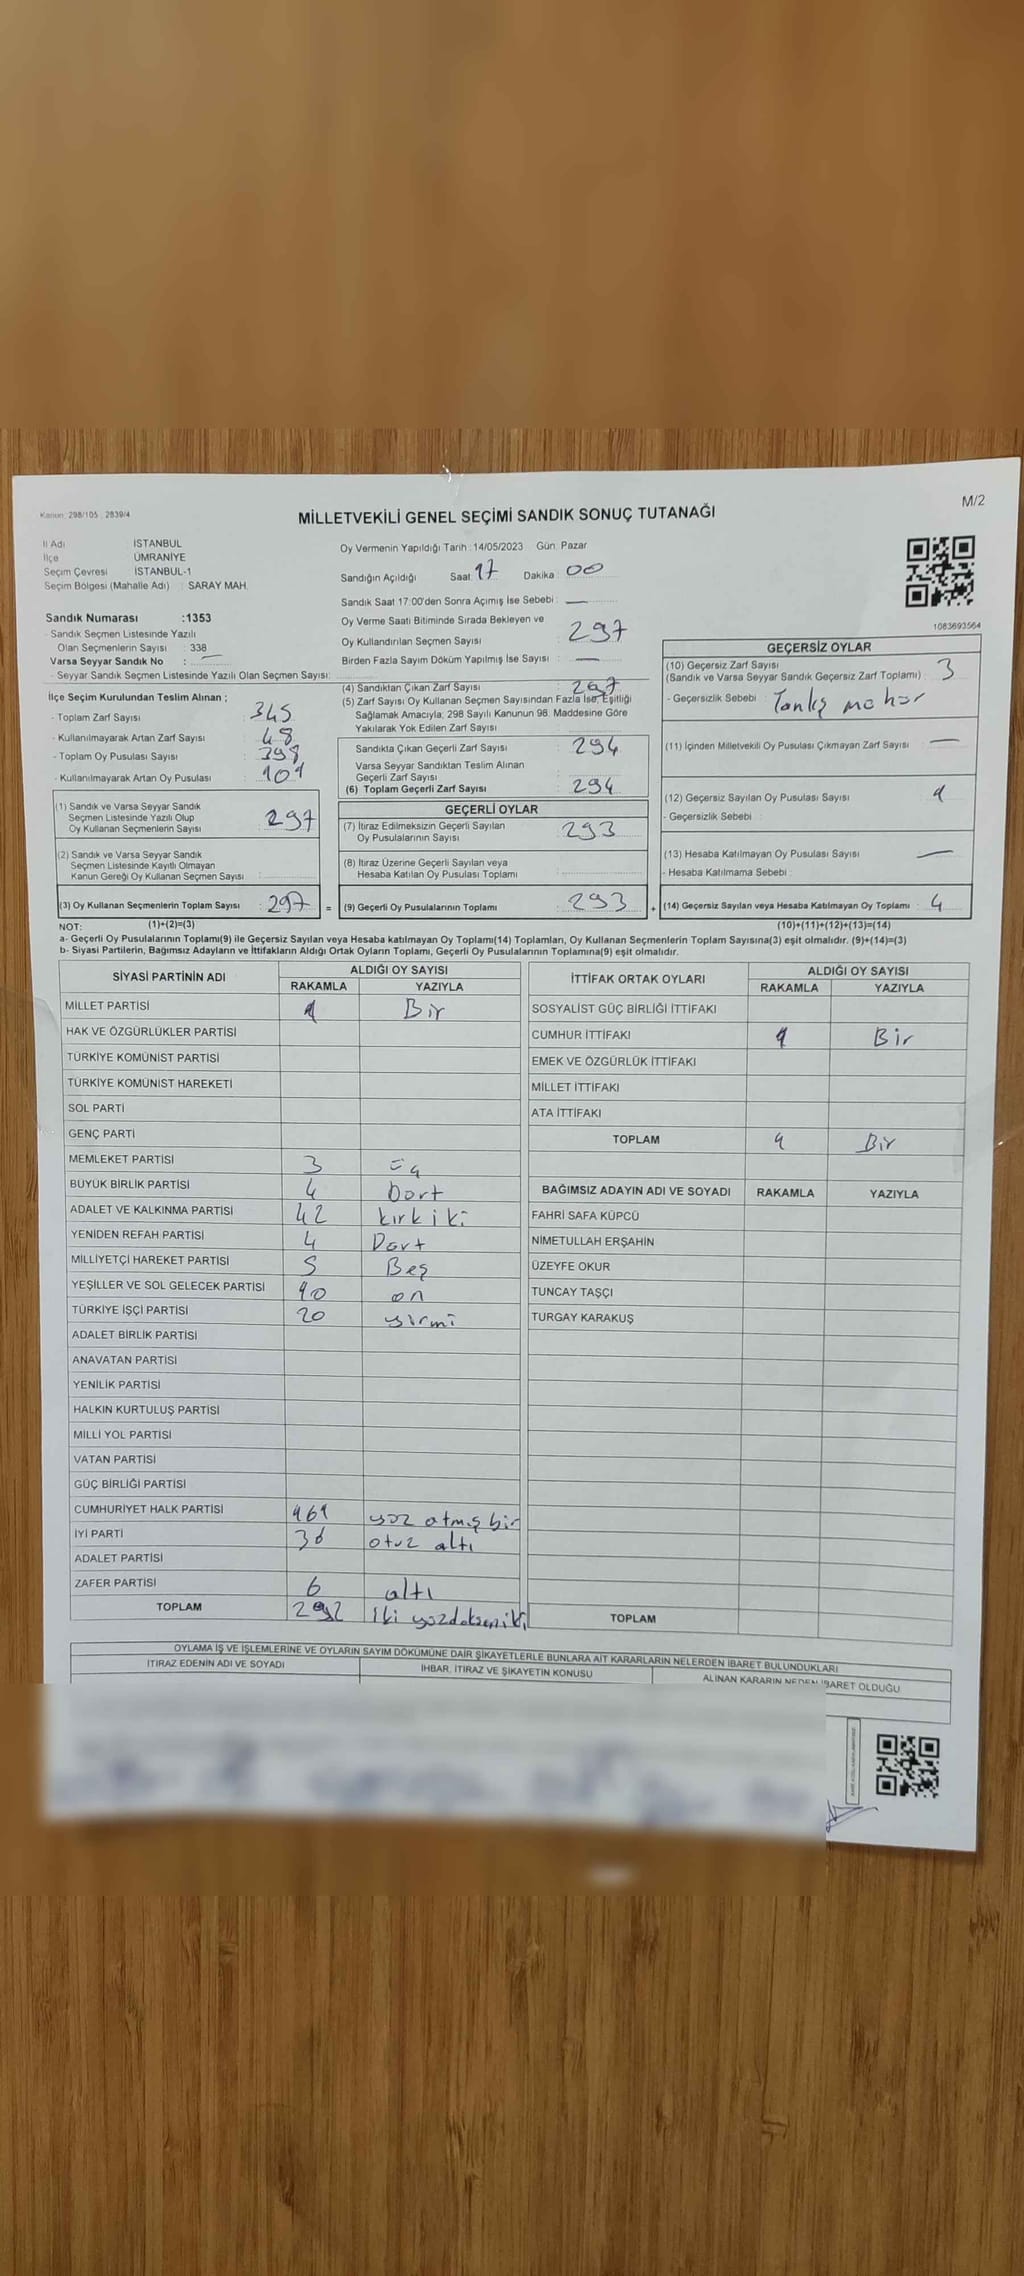 Kanun: 298/105 : 2839/4
MİLLETVEKİLİ GENEL SEÇİMİ SANDIK SONUÇ TUTANAĞI
M/2
İl Adı İSTANBUL
İlçe ÜMRANİYE
Seçim Çevresi İSTANBUL-1
Seçim Bölgesi (Mahalle Adı) : SARAY MAH.
Sandık Numarası :1353
- Sandık Seçmen Listesinde Yazılı
Olan Seçmenlerin Sayısı : 338
Varsa Seyyar Sandık No : —
- Seyyar Sandık Seçmen Listesinde Yazılı Olan Seçmen Sayısı:
İlçe Seçim Kurulundan Teslim Alınan ;
- Toplam Zarf Sayısı : 345
- Kullanılmayarak Artan Zarf Sayısı : 48
- Toplam Oy Pusulası Sayısı : 398
- Kullanılmayarak Artan Oy Pusulası : 101
(1) Sandık ve Varsa Seyyar Sandık
Seçmen Listesinde Yazılı Olup
Oy Kullanan Seçmenlerin Sayısı : 297
(2) Sandık ve Varsa Seyyar Sandık
Seçmen Listesinde Kayıtlı Olmayan
Kanun Gereği Oy Kullanan Seçmen Sayısı :
(3) Oy Kullanan Seçmenlerin Toplam Sayısı : 297 =
Oy Vermenin Yapıldığı Tarih : 14/05/2023 Gün: Pazar
Sandığın Açıldığı Saat: 17 Dakika : 00
Sandık Saat 17:00'den Sonra Açımış İse Sebebi : —
Oy Verme Saati Bitiminde Sırada Bekleyen ve
Oy Kullandırılan Seçmen Sayısı : 297
Birden Fazla Sayım Döküm Yapılmış İse Sayısı : —
(4) Sandıktan Çıkan Zarf Sayısı : 297
(5) Zarf Sayısı Oy Kullanan Seçmen Sayısından Fazla İse, Eşitliği
Sağlamak Amacıyla; 298 Sayılı Kanunun 98. Maddesine Göre
Yakılarak Yok Edilen Zarf Sayısı
Sandıkta Çıkan Geçerli Zarf Sayısı : 294
Varsa Seyyar Sandıktan Teslim Alınan
Geçerli Zarf Sayısı
(6) Toplam Geçerli Zarf Sayısı : 294
GEÇERLİ OYLAR
(7) İtiraz Edilmeksizin Geçerli Sayılan
Oy Pusulalarının Sayısı : 293
(8) İtiraz Üzerine Geçerli Sayılan veya
Hesaba Katılan Oy Pusulası Toplamı :
(9) Geçerli Oy Pusulalarının Toplamı : 293 +
1083693564
GEÇERSİZ OYLAR
(10) Geçersiz Zarf Sayısı
(Sandık ve Varsa Seyyar Sandık Geçersiz Zarf Toplamı) : 3
- Geçersizlik Sebebi :
(11) İçinden Milletvekili Oy Pusulası Çıkmayan Zarf Sayısı : —
(12) Geçersiz Sayılan Oy Pusulası Sayısı : 1
- Geçersizlik Sebebi :
(13) Hesaba Katılmayan Oy Pusulası Sayısı : —
- Hesaba Katılmama Sebebi :
(14) Geçersiz Sayılan veya Hesaba Katılmayan Oy Toplamı : 4
NOT: (1)+(2)=(3) (10)+(11)+(12)+(13)=(14)
a- Geçerli Oy Pusulalarının Toplamı(9) ile Geçersiz Sayılan veya Hesaba katılmayan Oy Toplamı(14) Toplamları, Oy Kullanan Seçmenlerin Toplam Sayısına(3) eşit olmalıdır. (9)+(14)=(3)
b- Siyasi Partilerin, Bağımsız Adayların ve İttifakların Aldığı Ortak Oyların Toplamı, Geçerli Oy Pusulalarının Toplamına(9) eşit olmalıdır.
SİYASİ PARTİNİN ADI ALDIĞI OY SAYISI
RAKAMLA YAZIYLA
MİLLET PARTİSİ 1 Bir
HAK VE ÖZGÜRLÜKLER PARTİSİ
TÜRKİYE KOMÜNİST PARTİSİ
TÜRKİYE KOMÜNİST HAREKETİ
SOL PARTİ
GENÇ PARTİ
MEMLEKET PARTİSİ 3 üç
BÜYÜK BİRLİK PARTİSİ 4 Dört
ADALET VE KALKINMA PARTİSİ 42 kırk iki
YENİDEN REFAH PARTİSİ 4 Dört
MİLLİYETÇİ HAREKET PARTİSİ 5 Beş
YEŞİLLER VE SOL GELECEK PARTİSİ 10 on
TÜRKİYE İŞÇİ PARTİSİ 20 yirmi
ADALET BİRLİK PARTİSİ
ANAVATAN PARTİSİ
YENİLİK PARTİSİ
HALKIN KURTULUŞ PARTİSİ
MİLLİ YOL PARTİSİ
VATAN PARTİSİ
GÜÇ BİRLİĞİ PARTİSİ
CUMHURİYET HALK PARTİSİ 161 yüz atmış bir
İYİ PARTİ 36 otuz altı
ADALET PARTİSİ
ZAFER PARTİSİ 6 altı
TOPLAM 292 İki yüzdoksaniki
İTTİFAK ORTAK OYLARI ALDIĞI OY SAYISI
RAKAMLA YAZIYLA
SOSYALİST GÜÇ BİRLİĞİ İTTİFAKI
CUMHUR İTTİFAKI 1 Bir
EMEK VE ÖZGÜRLÜK İTTİFAKI
MİLLET İTTİFAKI
ATA İTTİFAKI
TOPLAM 1 Bir
BAĞIMSIZ ADAYIN ADI VE SOYADI RAKAMLA YAZIYLA
FAHRİ SAFA KÜPCÜ
NİMETULLAH ERŞAHİN
ÜZEYFE OKUR
TUNCAY TAŞÇI
TURGAY KARAKUŞ
TOPLAM
OYLAMA İŞ VE İŞLEMLERİNE VE OYLARIN SAYIM DÖKÜMÜNE DAİR ŞİKAYETLERLE BUNLARA AİT KARARLARIN NELERDEN İBARET BULUNDUKLARI
İTİRAZ EDENİN ADI VE SOYADI İHBAR, İTİRAZ VE ŞİKAYETİN KONUSU ALINAN KARARIN NEDEN İBARET OLDUĞU